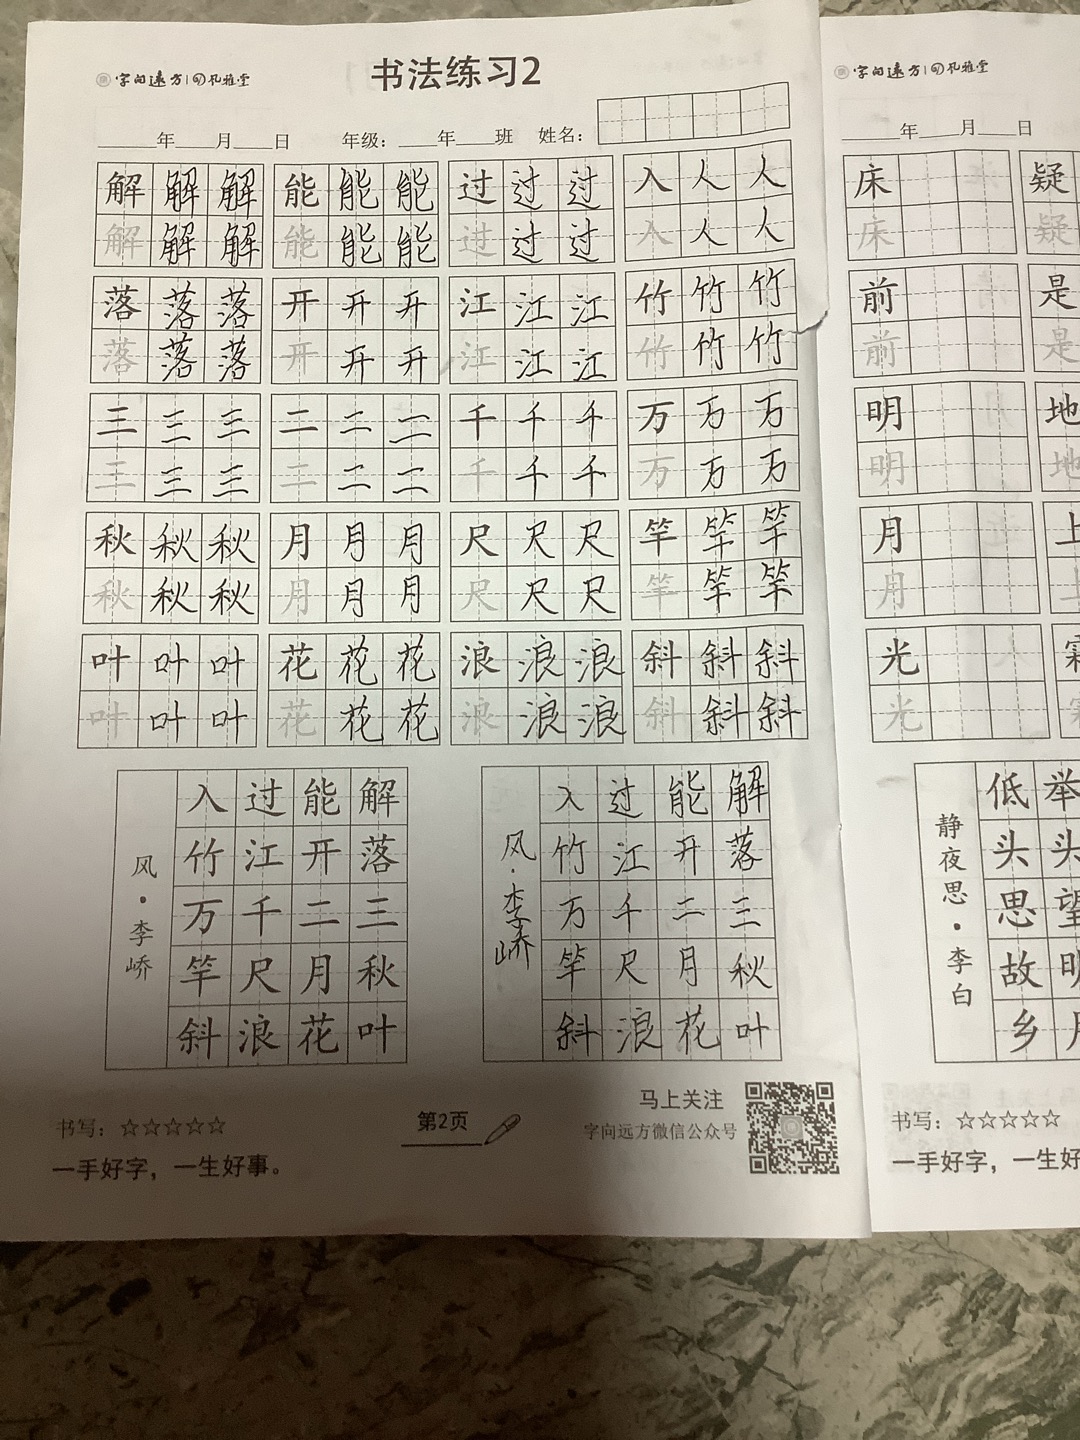 字向远方 孔雅堂
书法练习2
年 月 日 年级： 年 班 姓名：
解解解 能能能 过过过 入人人
解解解 能能能 过过过 入人人
落落落 开开开 江江江 竹竹竹
落落落 开开开 江江江 竹竹竹
三三三 二二二 千千千 万万万
三三三 二二二 千千千 万万万
秋秋秋 月月月 尺尺尺 竿竿竿
秋秋秋 月月月 尺尺尺 竿竿竿
叶叶叶 花花花 浪浪浪 斜斜斜
叶叶叶 花花花 浪浪浪 斜斜斜
解落三秋叶
能开二月花
过江千尺浪
入竹万竿斜
风·李峤
解落三秋叶
能开二月花
过江千尺浪
入竹万竿斜
风·李峤
书写：☆☆☆☆☆
一手好字，一生好事。
第2页
马上关注
字向远方微信公众号
字向远方 孔雅堂
年 月 日
床 疑
床 疑
前 是
前 是
明 地
明 地
月 上
月 上
光 霜
光 霜
举头望明月
低头思故乡
静夜思·李白
书写：☆☆☆☆☆
一手好字，一生好